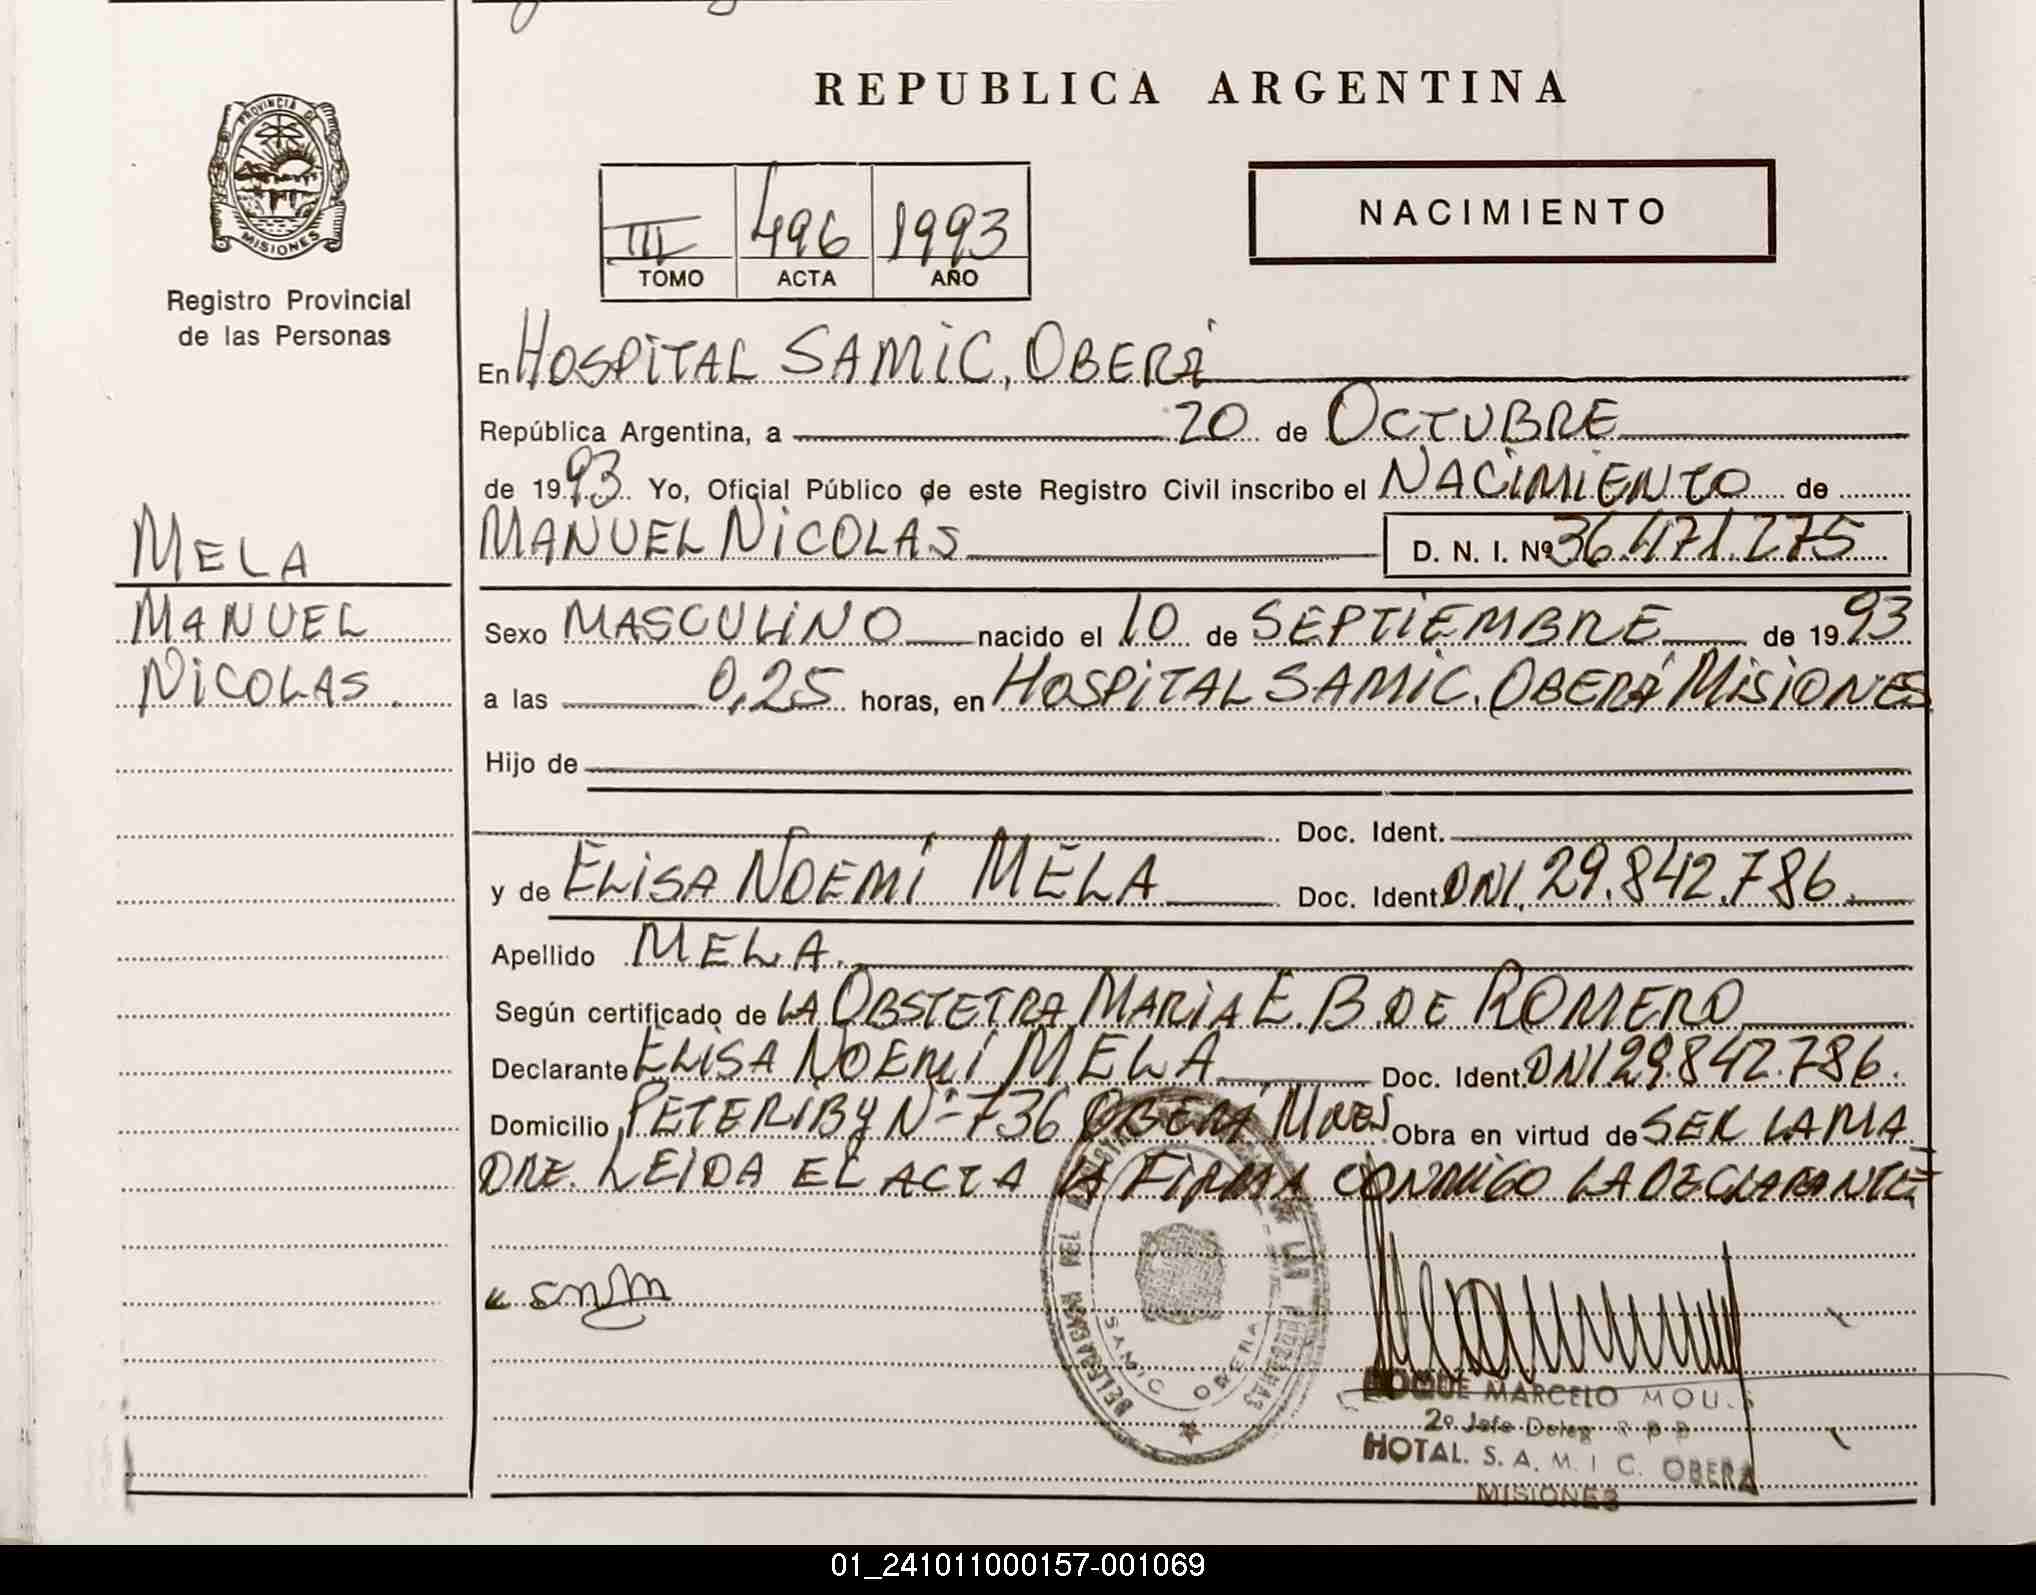 REPUBLICA ARGENTINA
PROVINCIA DE MISIONES
Registro Provincial
de las Personas
NACIMIENTO
III 496 1993
TOMO ACTA AÑO
En HOSPITAL SAMIC, OBERÁ
República Argentina, a 20 de OCTUBRE
de 1993. Yo, Oficial Público de este Registro Civil inscribo el NACIMIENTO de
MANUEL NICOLAS D. N. I. Nº 36.471.275
MELA
MANUEL
NICOLAS.
Sexo MASCULINO nacido el 10 de SEPTIEMBRE de 1993
a las 0,25 horas, en HOSPITAL SAMIC. OBERÁ MISIONES
Hijo de
Doc. Ident.
y de ELISA NOEMÍ MELA Doc. Ident. DNI. 29.842.786.
Apellido MELA.
Según certificado de LA OBSTETRA MARIA E. B. DE ROMERO
Declarante ELISA NOEMÍ MELA Doc. Ident. DNI 29.842.786.
Domicilio PETERIBY Nº 736 OBERÁ MNES Obra en virtud de SER LA MA
DRE. LEIDA EL ACTA LA FIRMA CONMIGO LA DECLARANTE
SAMIC OBERA
ROQUE MARCELO
2º Jefe Deleg R P P
HOTAL. S. A. M. I C. OBERA
MISIONES
01_241011000157-001069